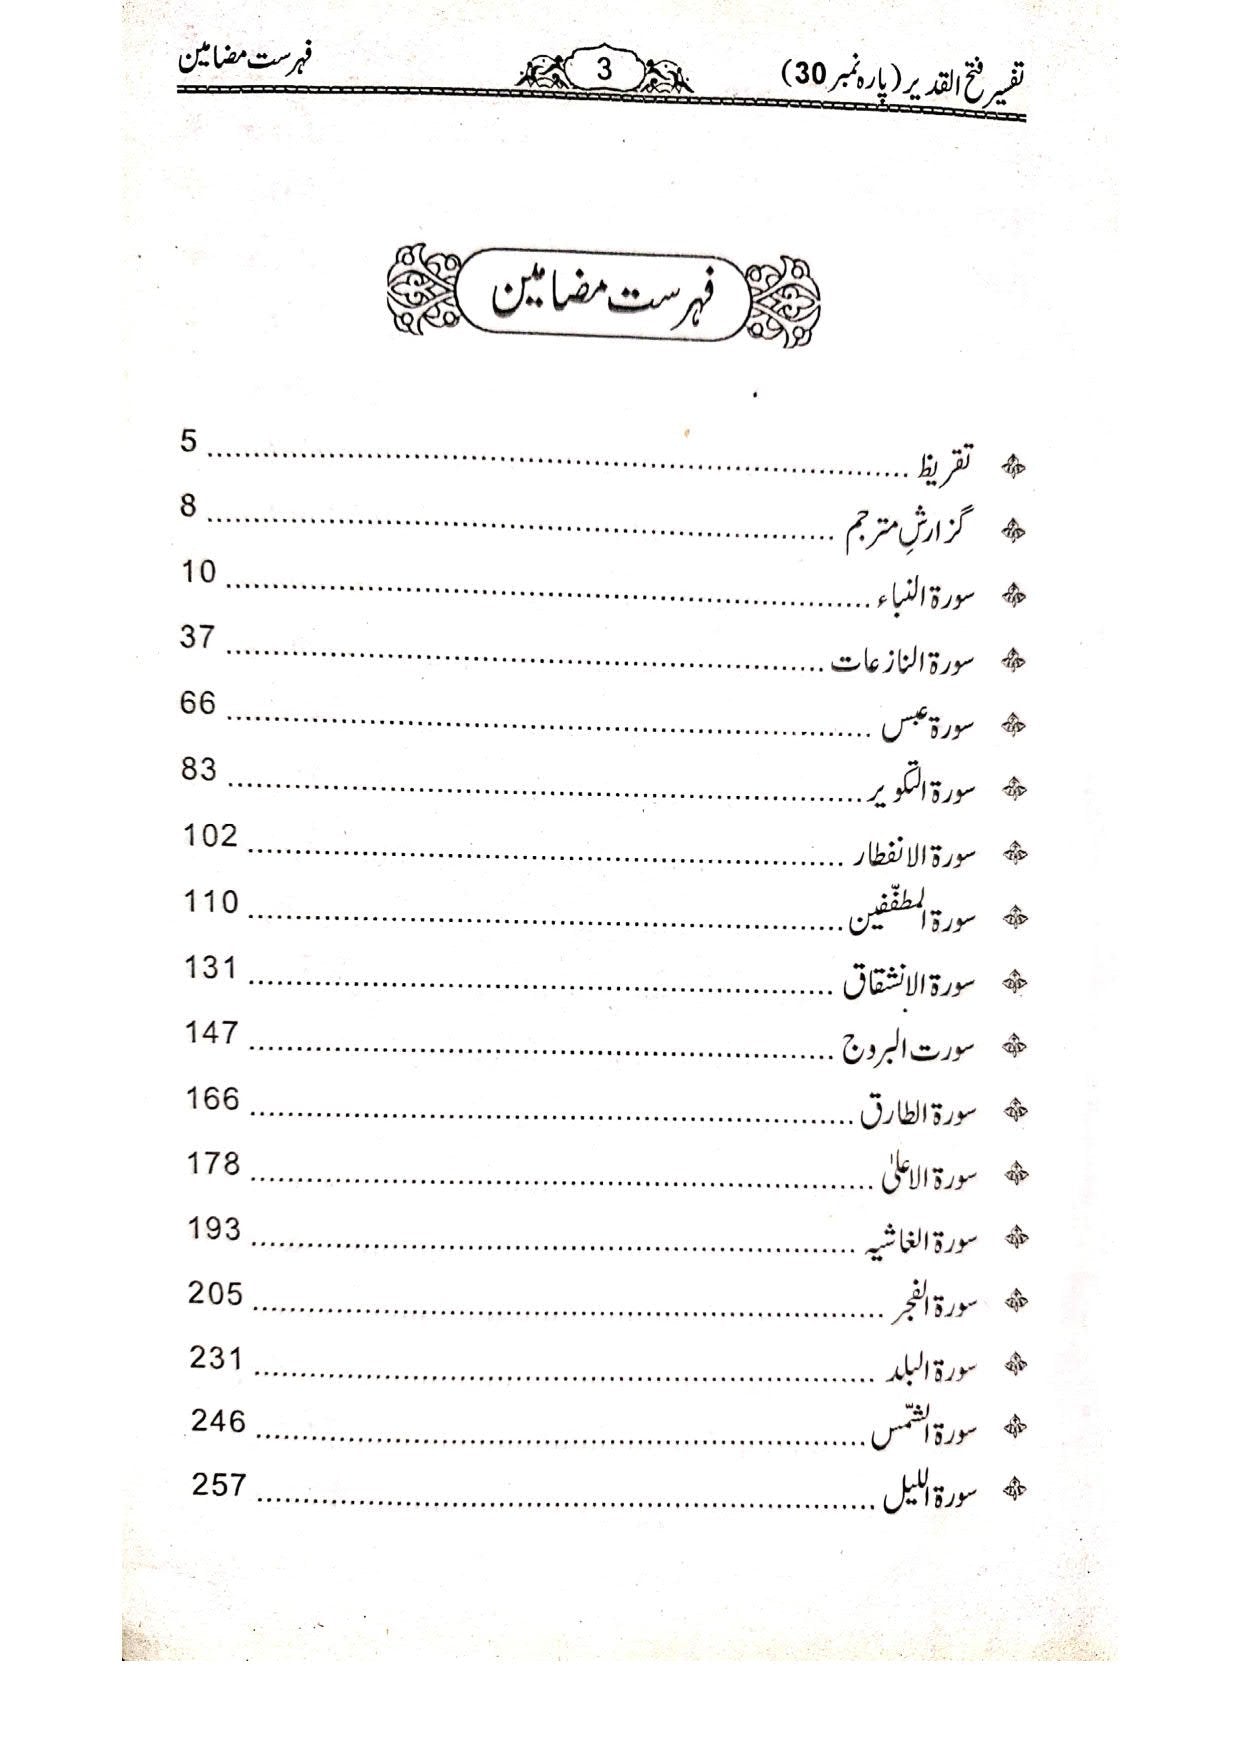 تفسیر فتح القدیر (پارہ نمبر 30) 3 فہرست مضامین
فہرست مضامین
تقریظ ........ 5
گزارشِ مترجم ........ 8
سورۃ النباء ........ 10
سورۃ النازعات ........ 37
سورۃ عبس ........ 66
سورۃ التکویر ........ 83
سورۃ الانفطار ........ 102
سورۃ المطفّفین ........ 110
سورۃ الانشقاق ........ 131
سورت البروج ........ 147
سورۃ الطارق ........ 166
سورۃ الاعلیٰ ........ 178
سورۃ الغاشیہ ........ 193
سورۃ الفجر ........ 205
سورۃ البلد ........ 231
سورۃ الشّمس ........ 246
سورۃ اللیل ........ 257